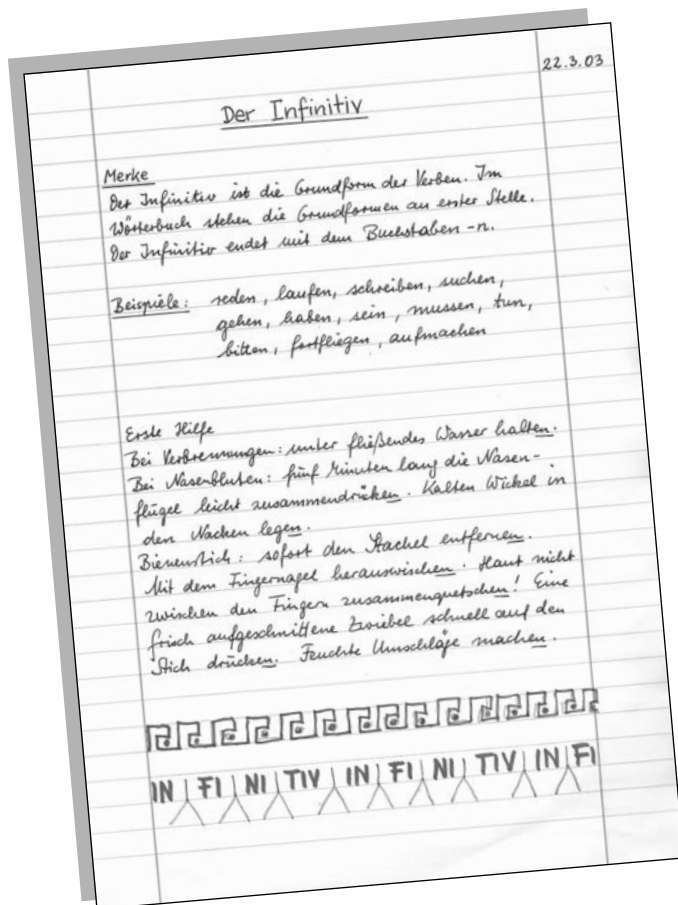 22.3.03
Der Infinitiv
Merke
Der Infinitiv ist die Grundform der Verben. Im
Wörterbuch stehen die Grundformen an erster Stelle.
Der Infinitiv endet mit dem Buchstaben -n.
Beispiele: reden, laufen, schreiben, suchen,
gehen, haben, sein, mussen, tun,
bitten, fortfliegen, aufmachen
Erste Hilfe
Bei Verbrennungen: unter fließendes Wasser halten.
Bei Nasenbluten: fünf Minuten lang die Nasen-
flügel leicht zusammendrücken. Kalten Wickel in
den Nacken legen.
Bienenstich: sofort den Stachel entfernen.
Mit dem Fingernagel herauswischen. Haut nicht
zwischen den Fingern zusammenquetschen! Eine
frisch aufgeschnittene Zwiebel schnell auf den
Stich drücken. Feuchte Umschläge machen.
IN FI NI TIV IN FI NI TIV IN FI